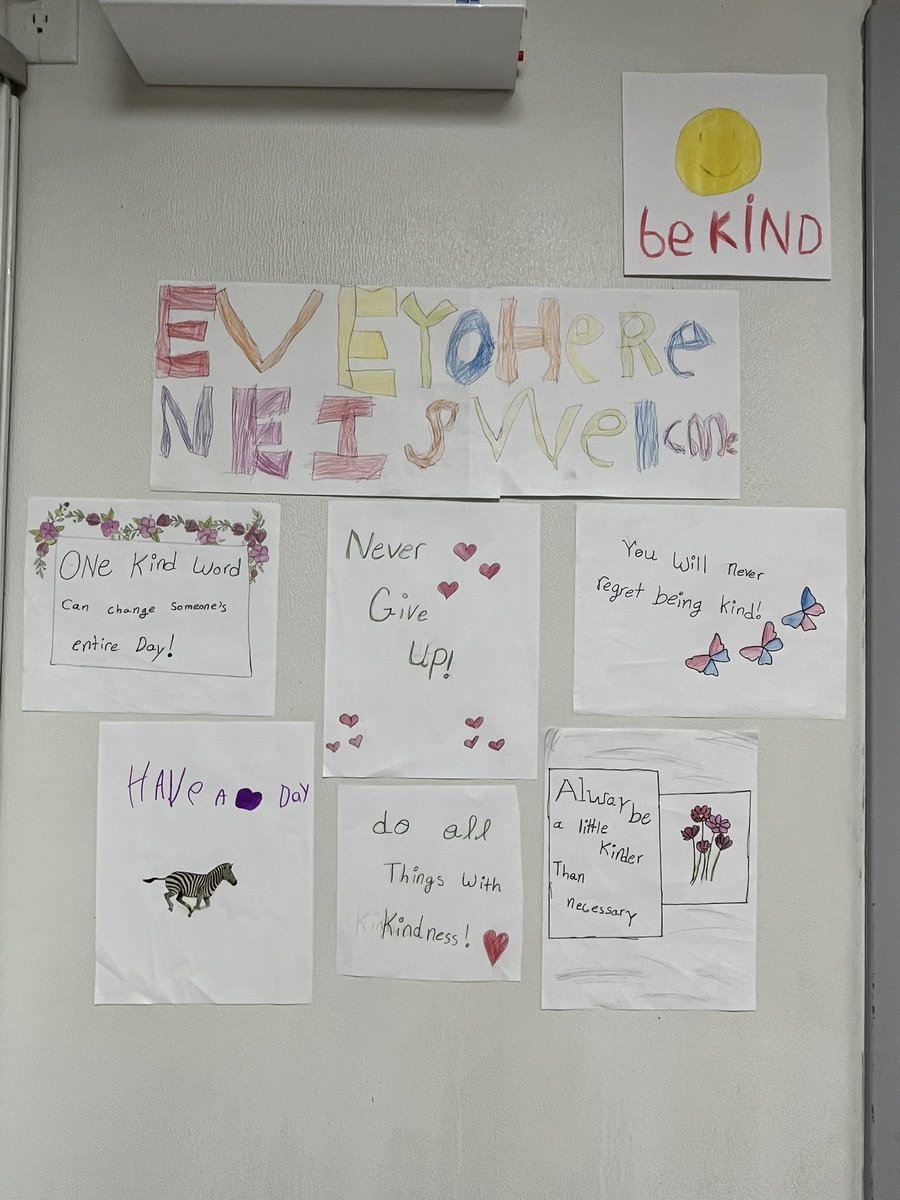 be KIND
EVEYO HeRe
NE IS Welcme
ONE Kind Word
Can change Someone's
entire Day!
Never
Give
Up!
You Will never
regret being kind!
HAVe A DAY
do all
Things With
Kindness!
Alway be
a little
Kinder
Than
necessary